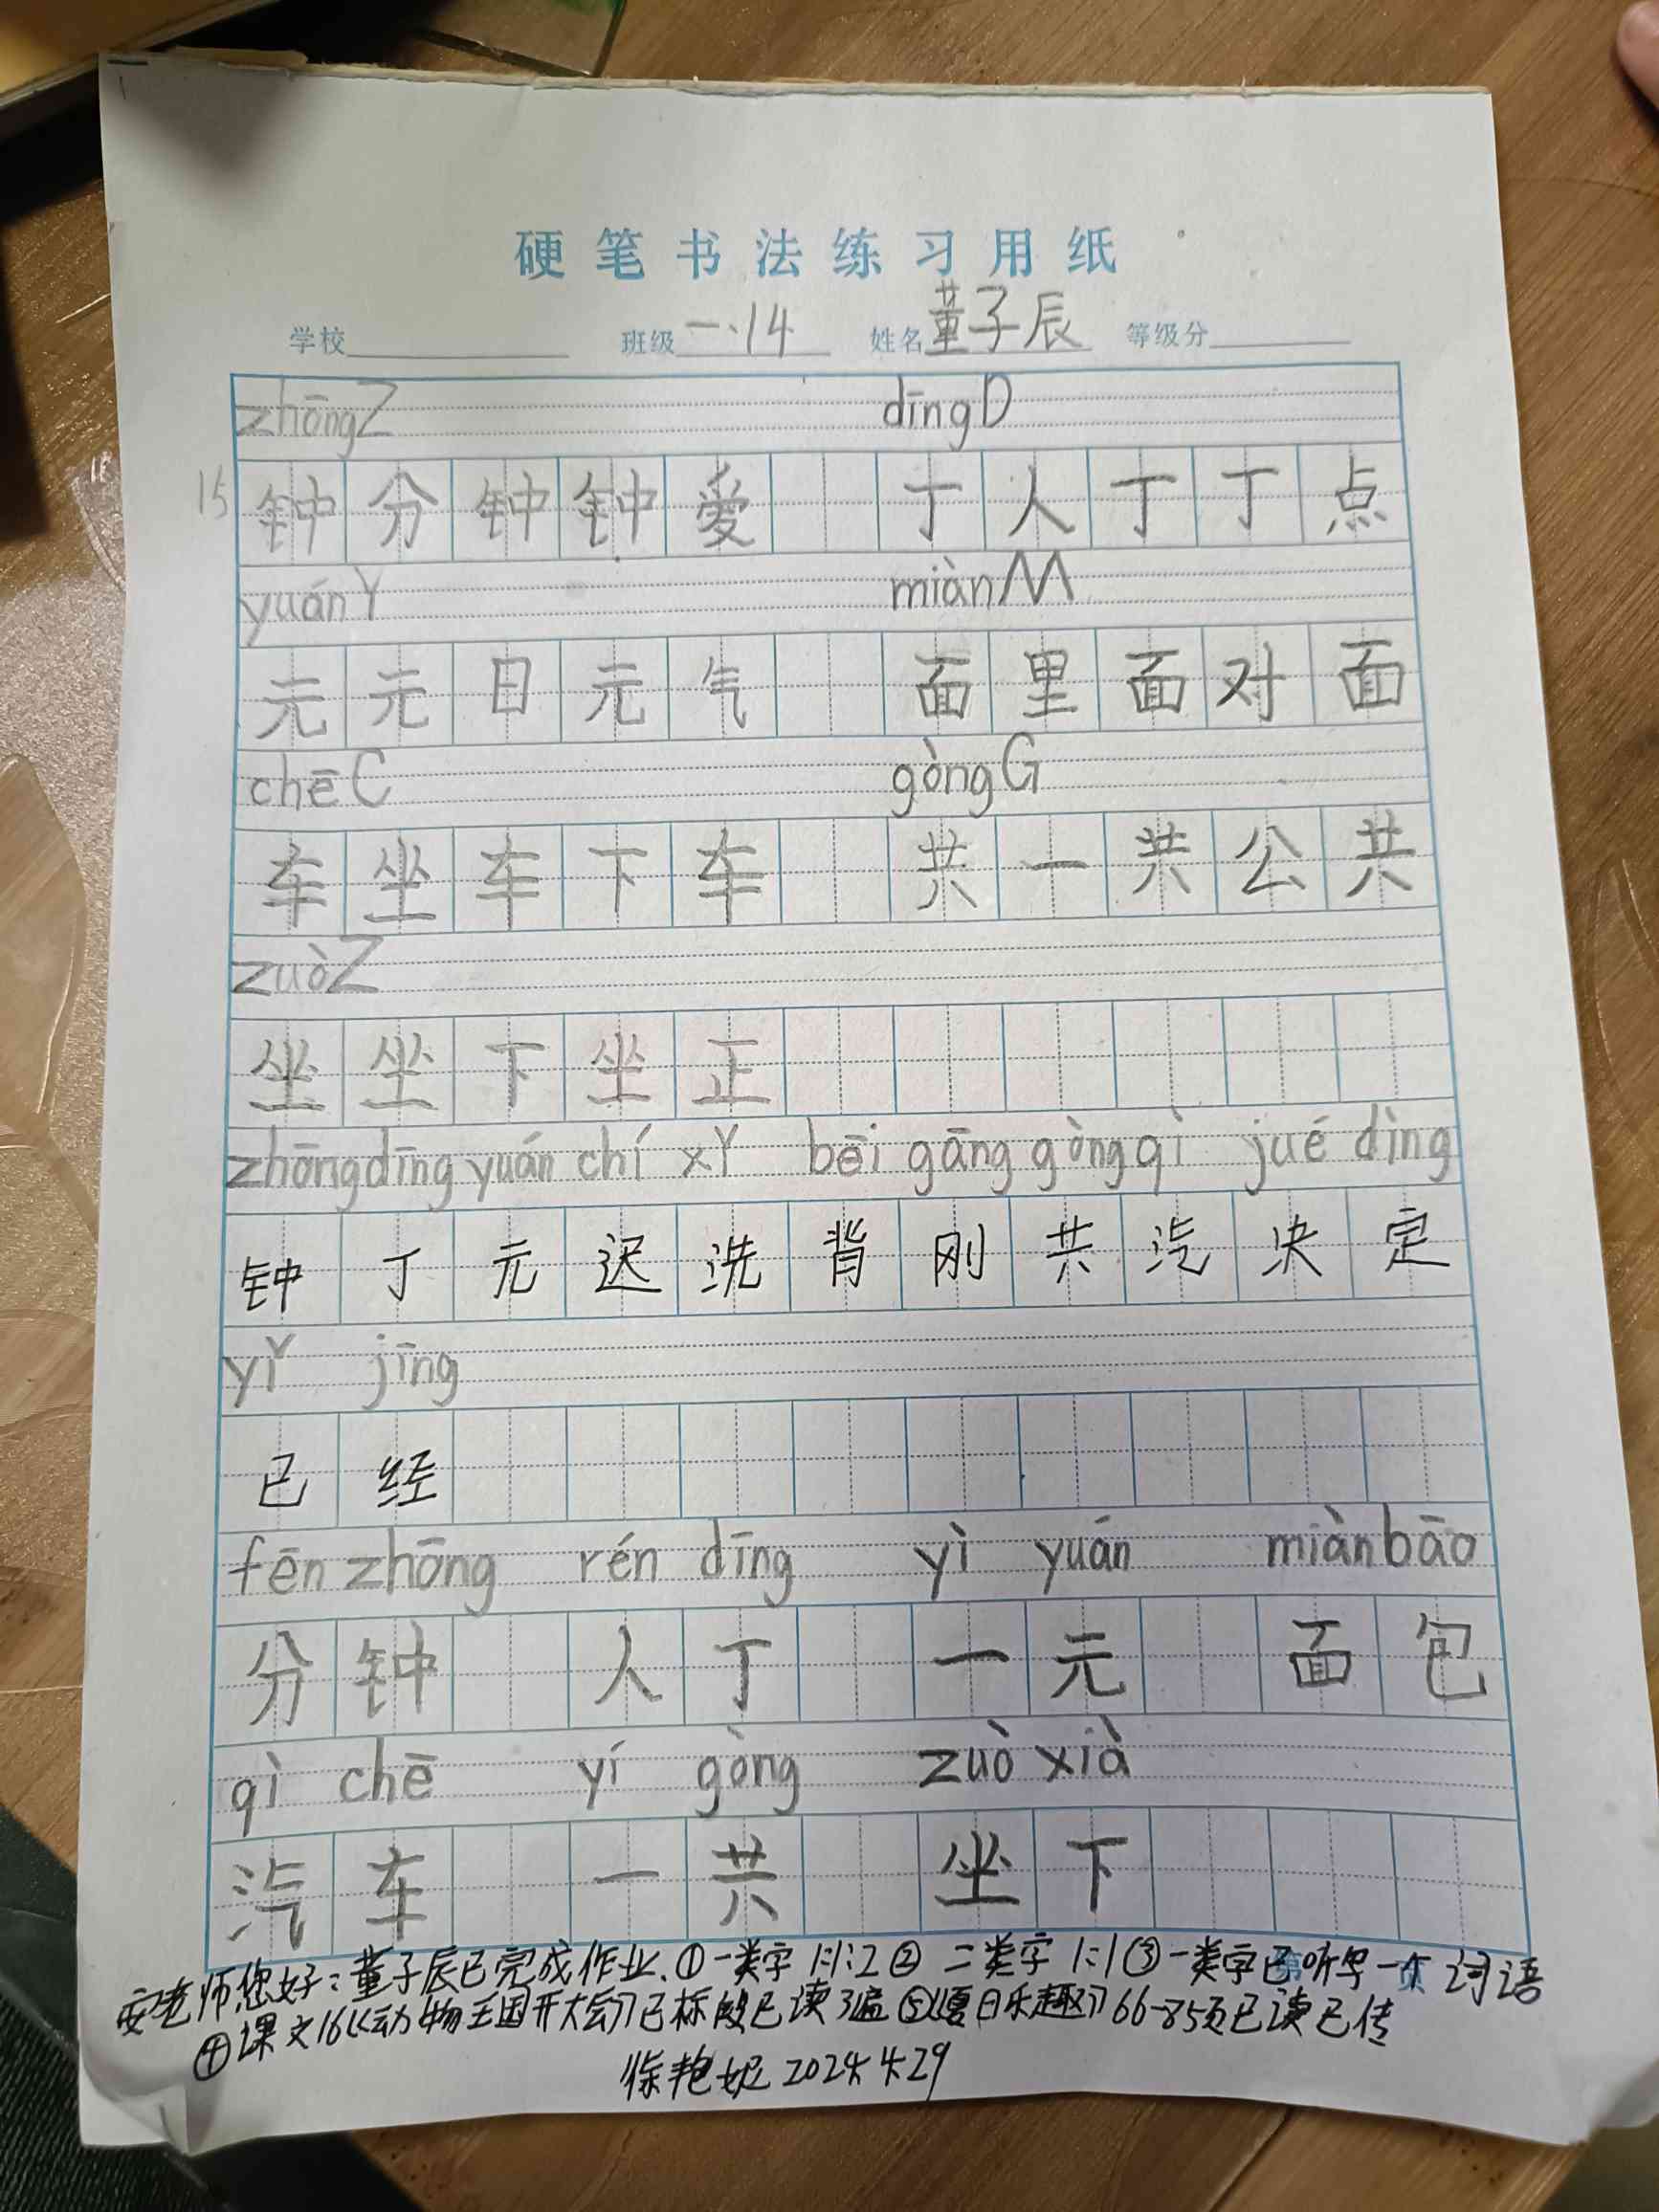 硬笔书法练习用纸
学校 班级 一.14 姓名 董子辰 等级分
zhōng Z dīng D
15 钟 分 钟 钟 爱 丁 人 丁 丁 点
yuán Y miàn M
元 元 日 元 气 面 里 面 对 面
chē C gòng G
车 坐 车 下 车 共 一 共 公 共
zuò Z
坐 坐 下 坐 正
zhōng dīng yuán chí xǐ bēi gāng gòng qì jué dìng
钟 丁 元 迟 洗 背 刚 共 汽 决 定
yǐ jīng
已 经
fēn zhōng rén dīng yì yuán miàn bāo
分 钟 人 丁 一 元 面 包
qì chē yí gòng zuò xià
汽 车 一 共 坐 下
安老师您好:董子辰已完成作业.①一类字1:1:2②二类字1:1③一类字已听写一个词语
④课文16《动物王国开大会》已标段已读3遍⑤《夏日乐趣》66-85页已读已传
徐艳妮 2024.4.29